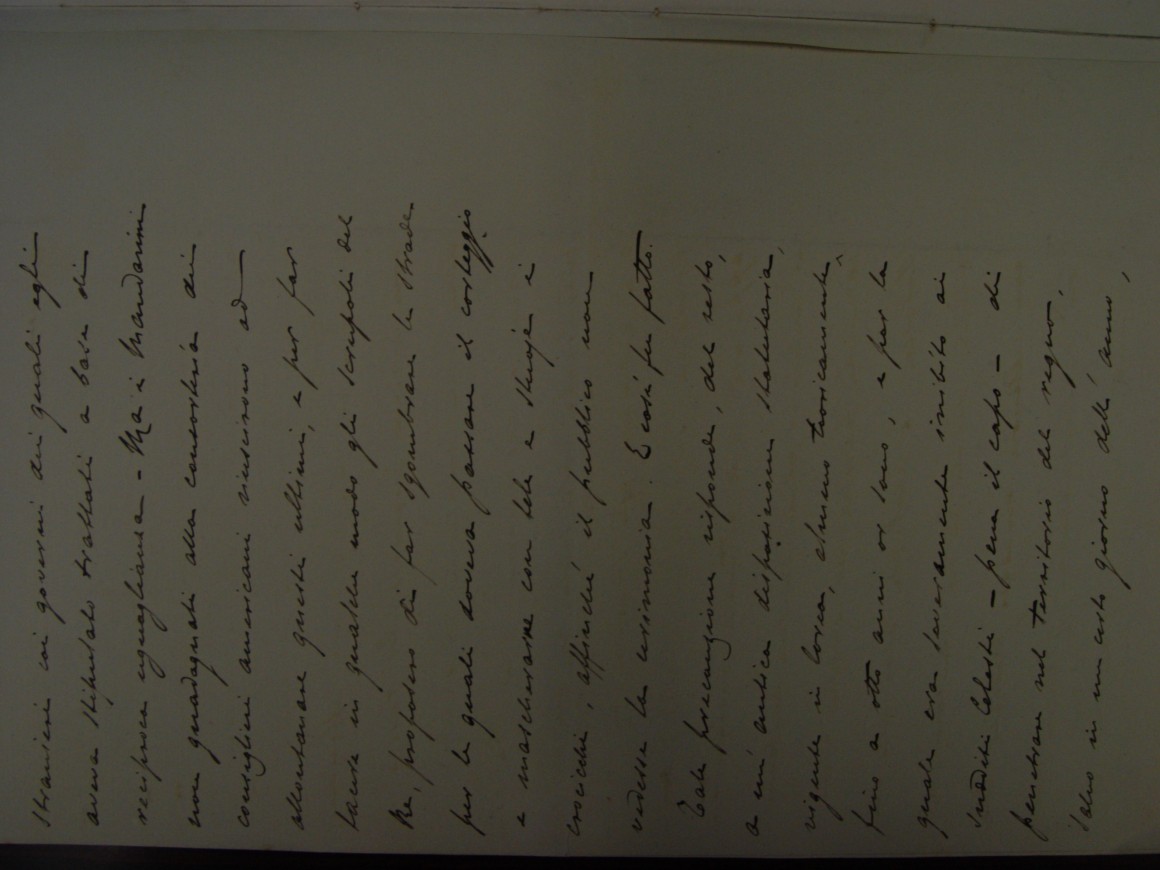 stranieri coi governi dei quali egli
aveva stipulato trattati a base di
reciproca uguaglianza - Ma i Mandarini
non guadagnati alla consorteria dei
consiglieri americani riuscirono ad
allontanare questi ultimi, e per far
tacere in qualche modo gli scrupoli del
Re, proposero di far sgombrare le strade
per le quali doveva passare il corteggio
e mascherarne con tele e stuoje i
crocicchi, affinché il pubblico non
vedesse la cerimonia. E così fu fatto.
Tale precauzione risponde, del resto,
a un'antica disposizione statutaria,
vigente in Corea, almeno teoricamente,
fino a otto anni or sono, e per la
quale era severamente inibito ai
sudditi Celesti - pena il capo - di
penetrare nel territorio del regno,
salvo in un certo giorno dell'anno,